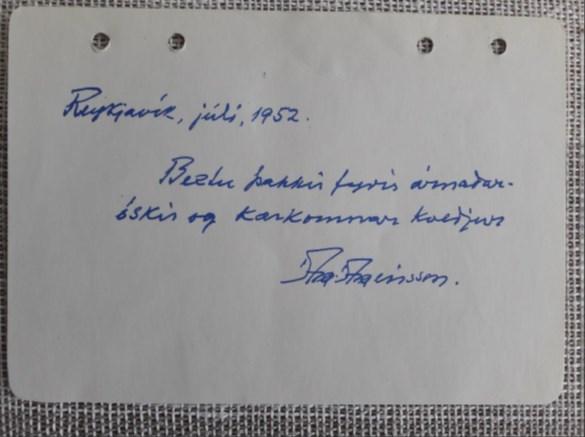 Reykjavík, júlí, 1952.
Beztu þakkir fyrir árnaðar-
óskir og kærkomnar kveðjur